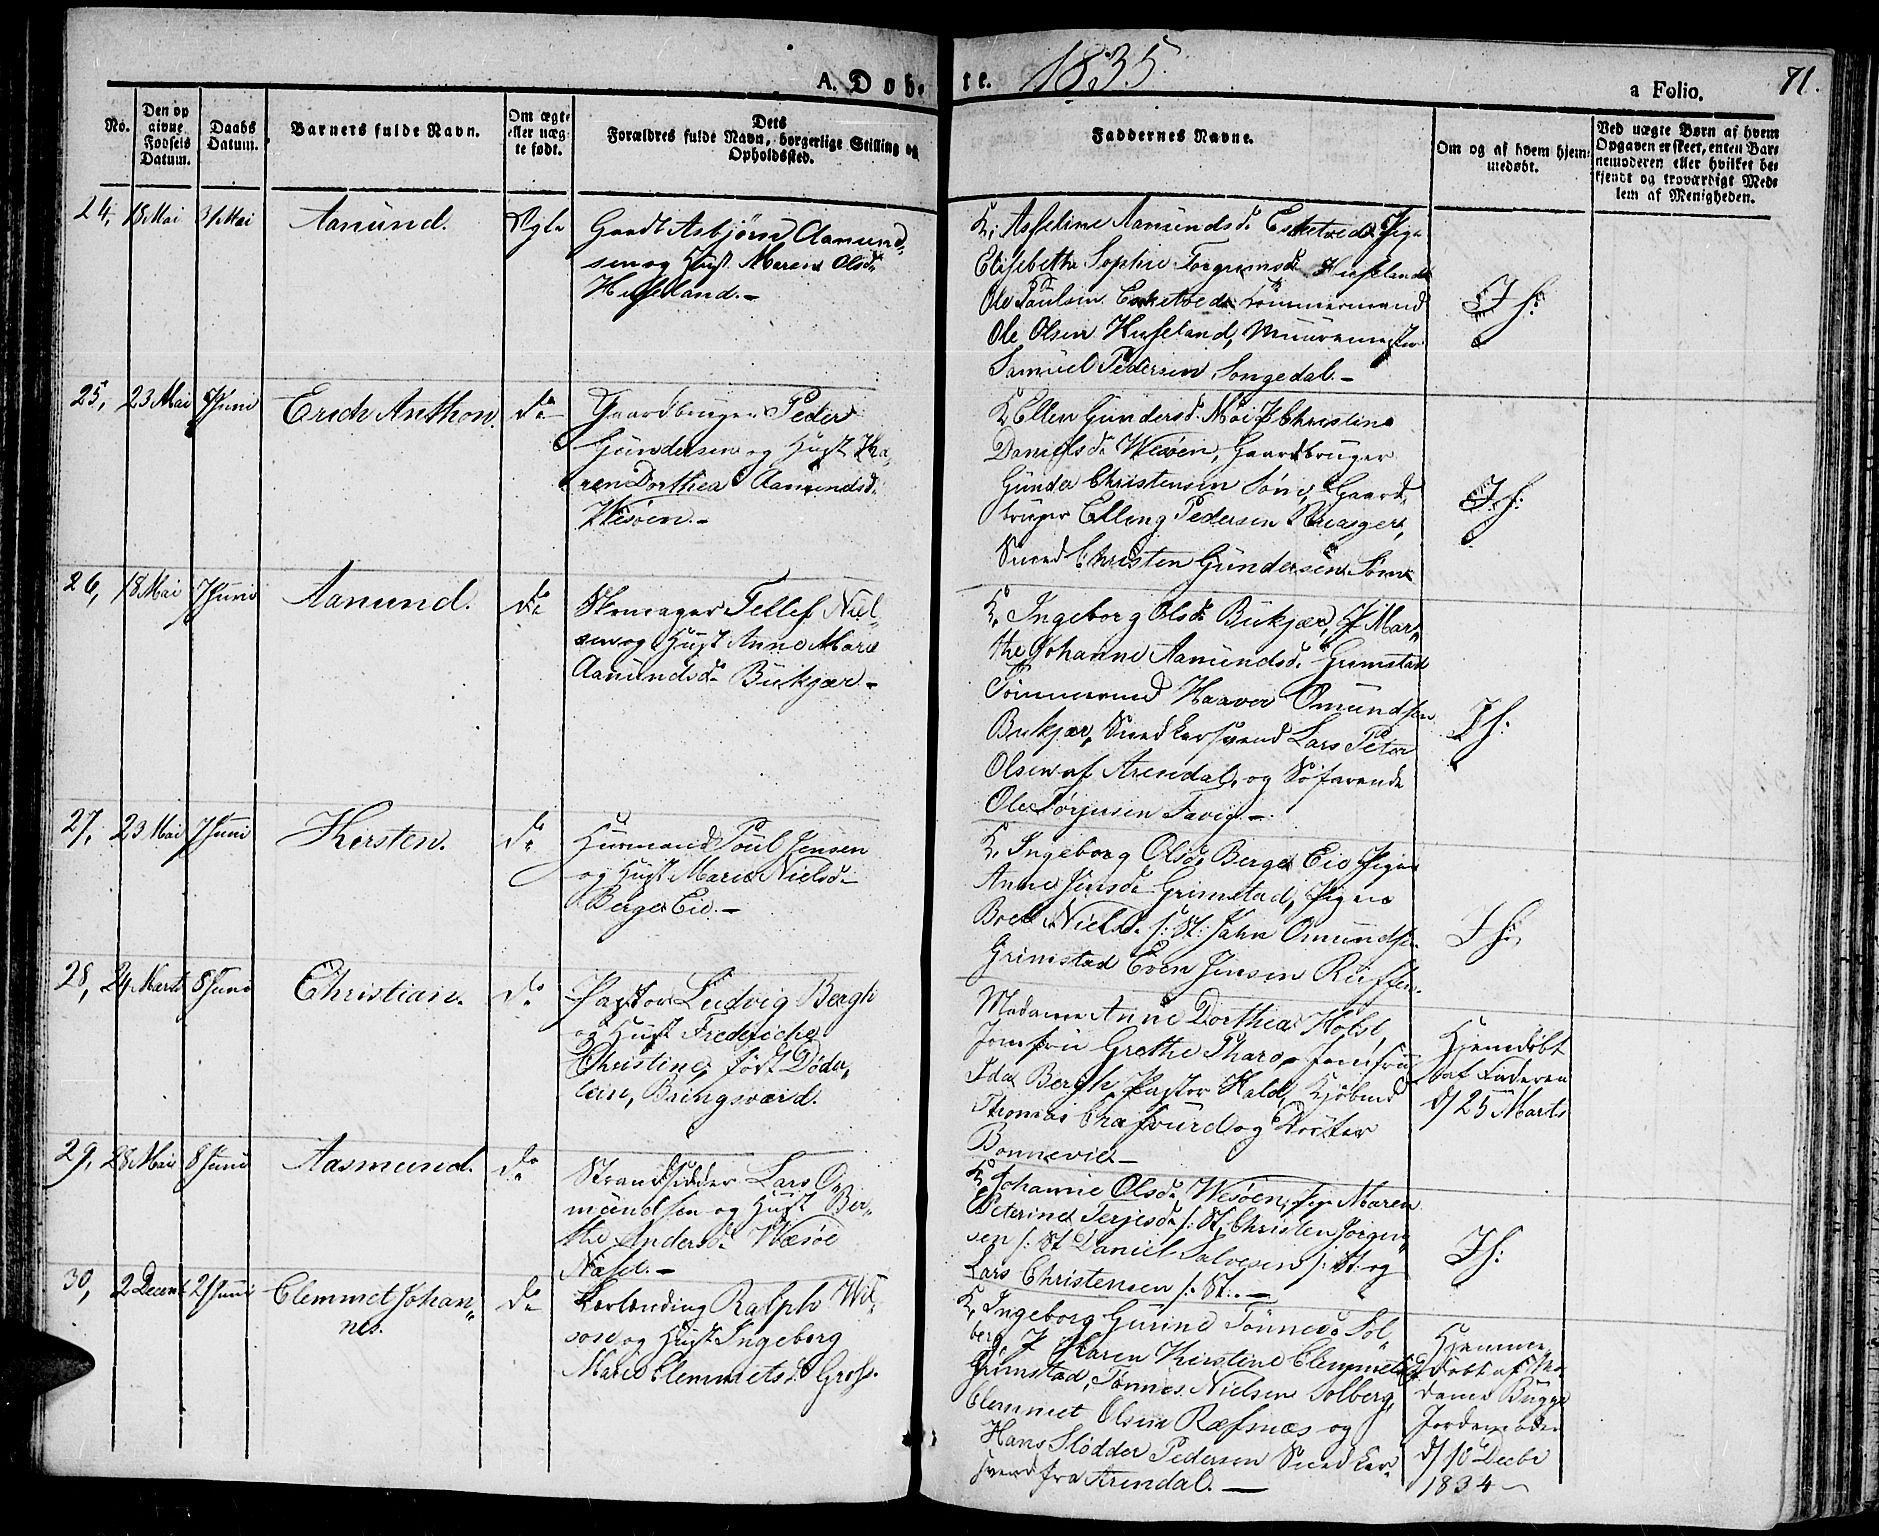 A. Døb-
te. 1835.
a Folio. 71.
No.
Den op
givne
Fødsels
Datum.
Daabs
Datum.
Barnets fulde Navn.
Om ægte
eller uæg-
te født.
Dets
Forældres fulde Navn, borgerlige Stilling og
Opholdssted.
Faddernes Navne.
Om og af hvem hjem-
medøbt.
Ved uægte Børn af hvem
Opgaven er skeet, enten Bar-
nemoderen eller hvilket be-
kjendt og troværdigt Med-
lem af Menigheden.
24, 18 Mai 31 Mai Aanund. Ægte
Gaardb Asbjørn Aanund-
sen og Hust. Maren Olsd.
Huseland.-
K, Asseline Aanundsd. Esketved Pige
Elisebethe Sophie Torgrimsd. Huseland
Ole Paulsen Esketved Tømmermand
Ole Olsen Huseland, Muurmester
Samuel Pedersen, Songedal.-
25, 23 Mai 7 Juni Erich Anthon. do
Gaardbruger Peder
Gundersen og Hust Ka-
ren Dorthea Aanundsd.
Wesøen.-
K Ellen Gundersd. Møi P Christine
Danielsd. Wesøen, Gaardbruger
Gunder Christensen Søm, Gaard-
bruger Elling Pedersen
Svend Christen Gundersen Søm
26, 18 Mai 7 Juni Aanund. do
Skomager Tellef Niel-
sen og Hust Anne Marie
Aanundsd. Bukjær.-
K. Ingeborg Olsd. Bukjær, P Mar-
the Johanne Aanundsd. Grimstad
Tømmermd Haavor Omundsen
Bukjær, Snedkersvend Lars Peter
Olsen af Arendal, og Søfarende
Ole Torjusen Favig.-
27, 23 Mai 7 Juni Kersten. do
Huusmand Poul Jensen
og Hust Marie Nielsd.
Berge Eie.-
K. Ingeborg Olsd. Berge Eie Pigen
Anne Jensd. Grimstad, Pigen
Boel Nielsd. /: St: John Omundsen
Grimstad Even Jensen Ruffen.
28, 24 Marts 8 Juni Christian. do
Pastor Ludvig Bergh
og Hust Frederiche
Christine, født Døder-
lein, Bringsværd.
Madame Anne Dorthea Holst,
Jomfru Grethe Jomfru
Ida Bergh, Pastor Hald, Kjøbmd
Thomas Crafourd og Doctor
Bonnevie.-
Hjemdøbt
af Faderen
d/ 25 Marts
29, 28 Mai 8 Juni Aasmund. do
Strandsidder Lars O-
mundsen og Hust Ber-
the Andersd. Wæsøe
Næsel.-
K, Johanne Olsd. Wesøen, Pige Maren
Peterine Terjesd. /: St, Christen Jørgen-
sen /: St Daniel Salvesen /: St: og
Lars Christensen /: St:.-
30, 2 Decembr 21 Juni Clemmet Johan-
nes.
do
Værlending Ralph Wil-
son og Hust Ingeborg
Marie Clemmetsd. Gross.
K. Ingeborg Gurine Tønnesd. Sol-
berg, P Karen Kirstine Clemmetsd.
Grimstad, Tønnes Nielsen Solberg,
Clemmet Olsen Ræfsnæs og
Hans Slødder Pedersen Snedker-
svend fra Arendal.-
Hjemme-
døbt af Ma-
dame Bugge
Jordemoder
d/ 10 Decbr
1834-